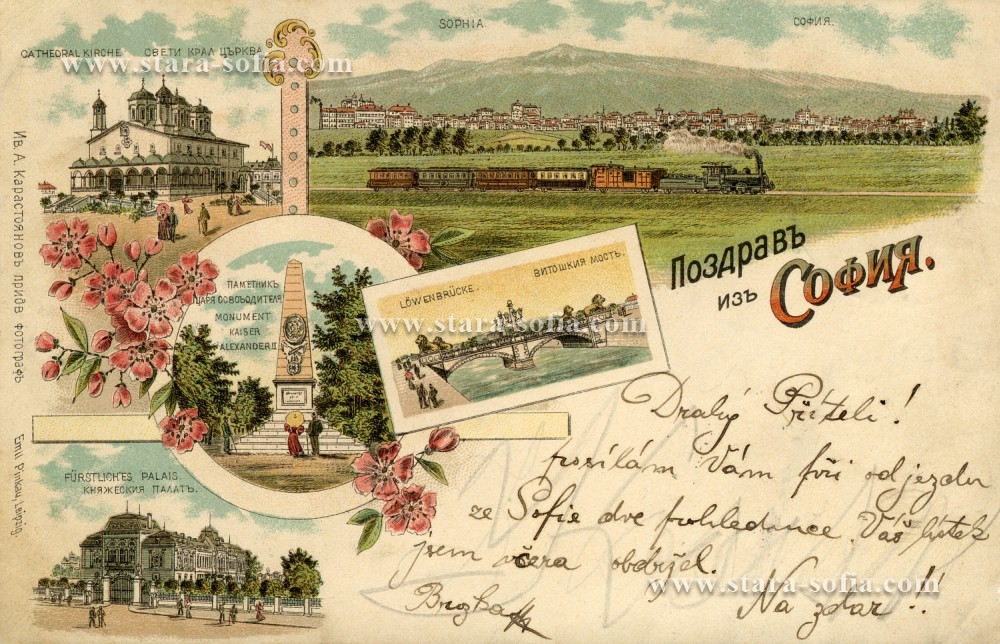 SOPHIA. СОФИЯ.
CATHEDRAL KIRCHE СВЕТИ КРАЛ ЦЪРКВА
www.stara-sofia.com www.stara-sofia.com
Ив. А. Карастояновъ прид. фотографъ
Emil Pinkau, Leipzig.
Поздравъ
изъ София.
ПАМЕТНИКЪ
ЦАРЯ ОСВОБОДИТЕЛЯ
MONUMENT
KAISER
ALEXANDER II
LÖWENBRÜCKE. ВИТОШКИЯ МОСТЪ.
www.stara-sofia.com
FÜRSTLICHES PALAIS.
КНЯЖЕСКИЯ ПАЛАТЪ.
Drahý Příteli!
posílám Vám při odjezdu
ze Sofie dvě pohlednice. Váš lístek
jsem včera obdržel.
Na zdar!!
www.stara-sofia.com www.stara-sofia.com